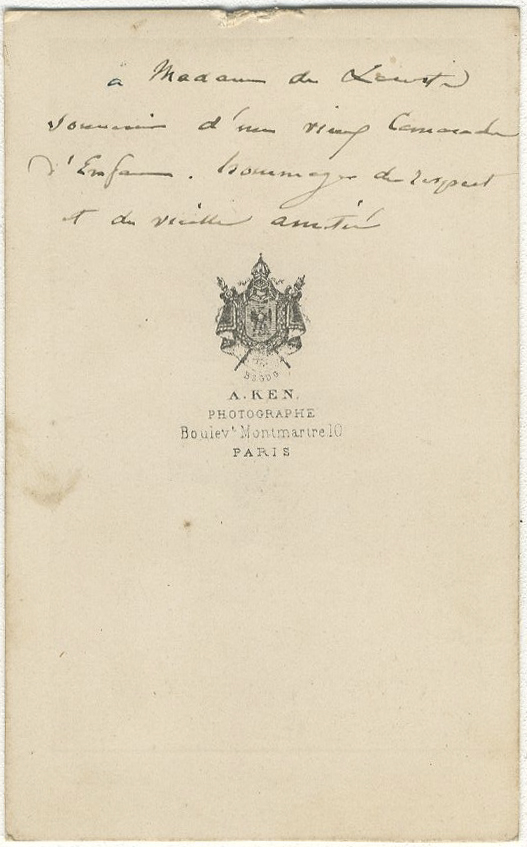 à Madame de
Souvenir d'un vieux Camarade
d'Enfance. hommages de respect
et de vieille amitié
A. KEN.
PHOTOGRAPHE
Boulev.t Montmartre 10
PARIS